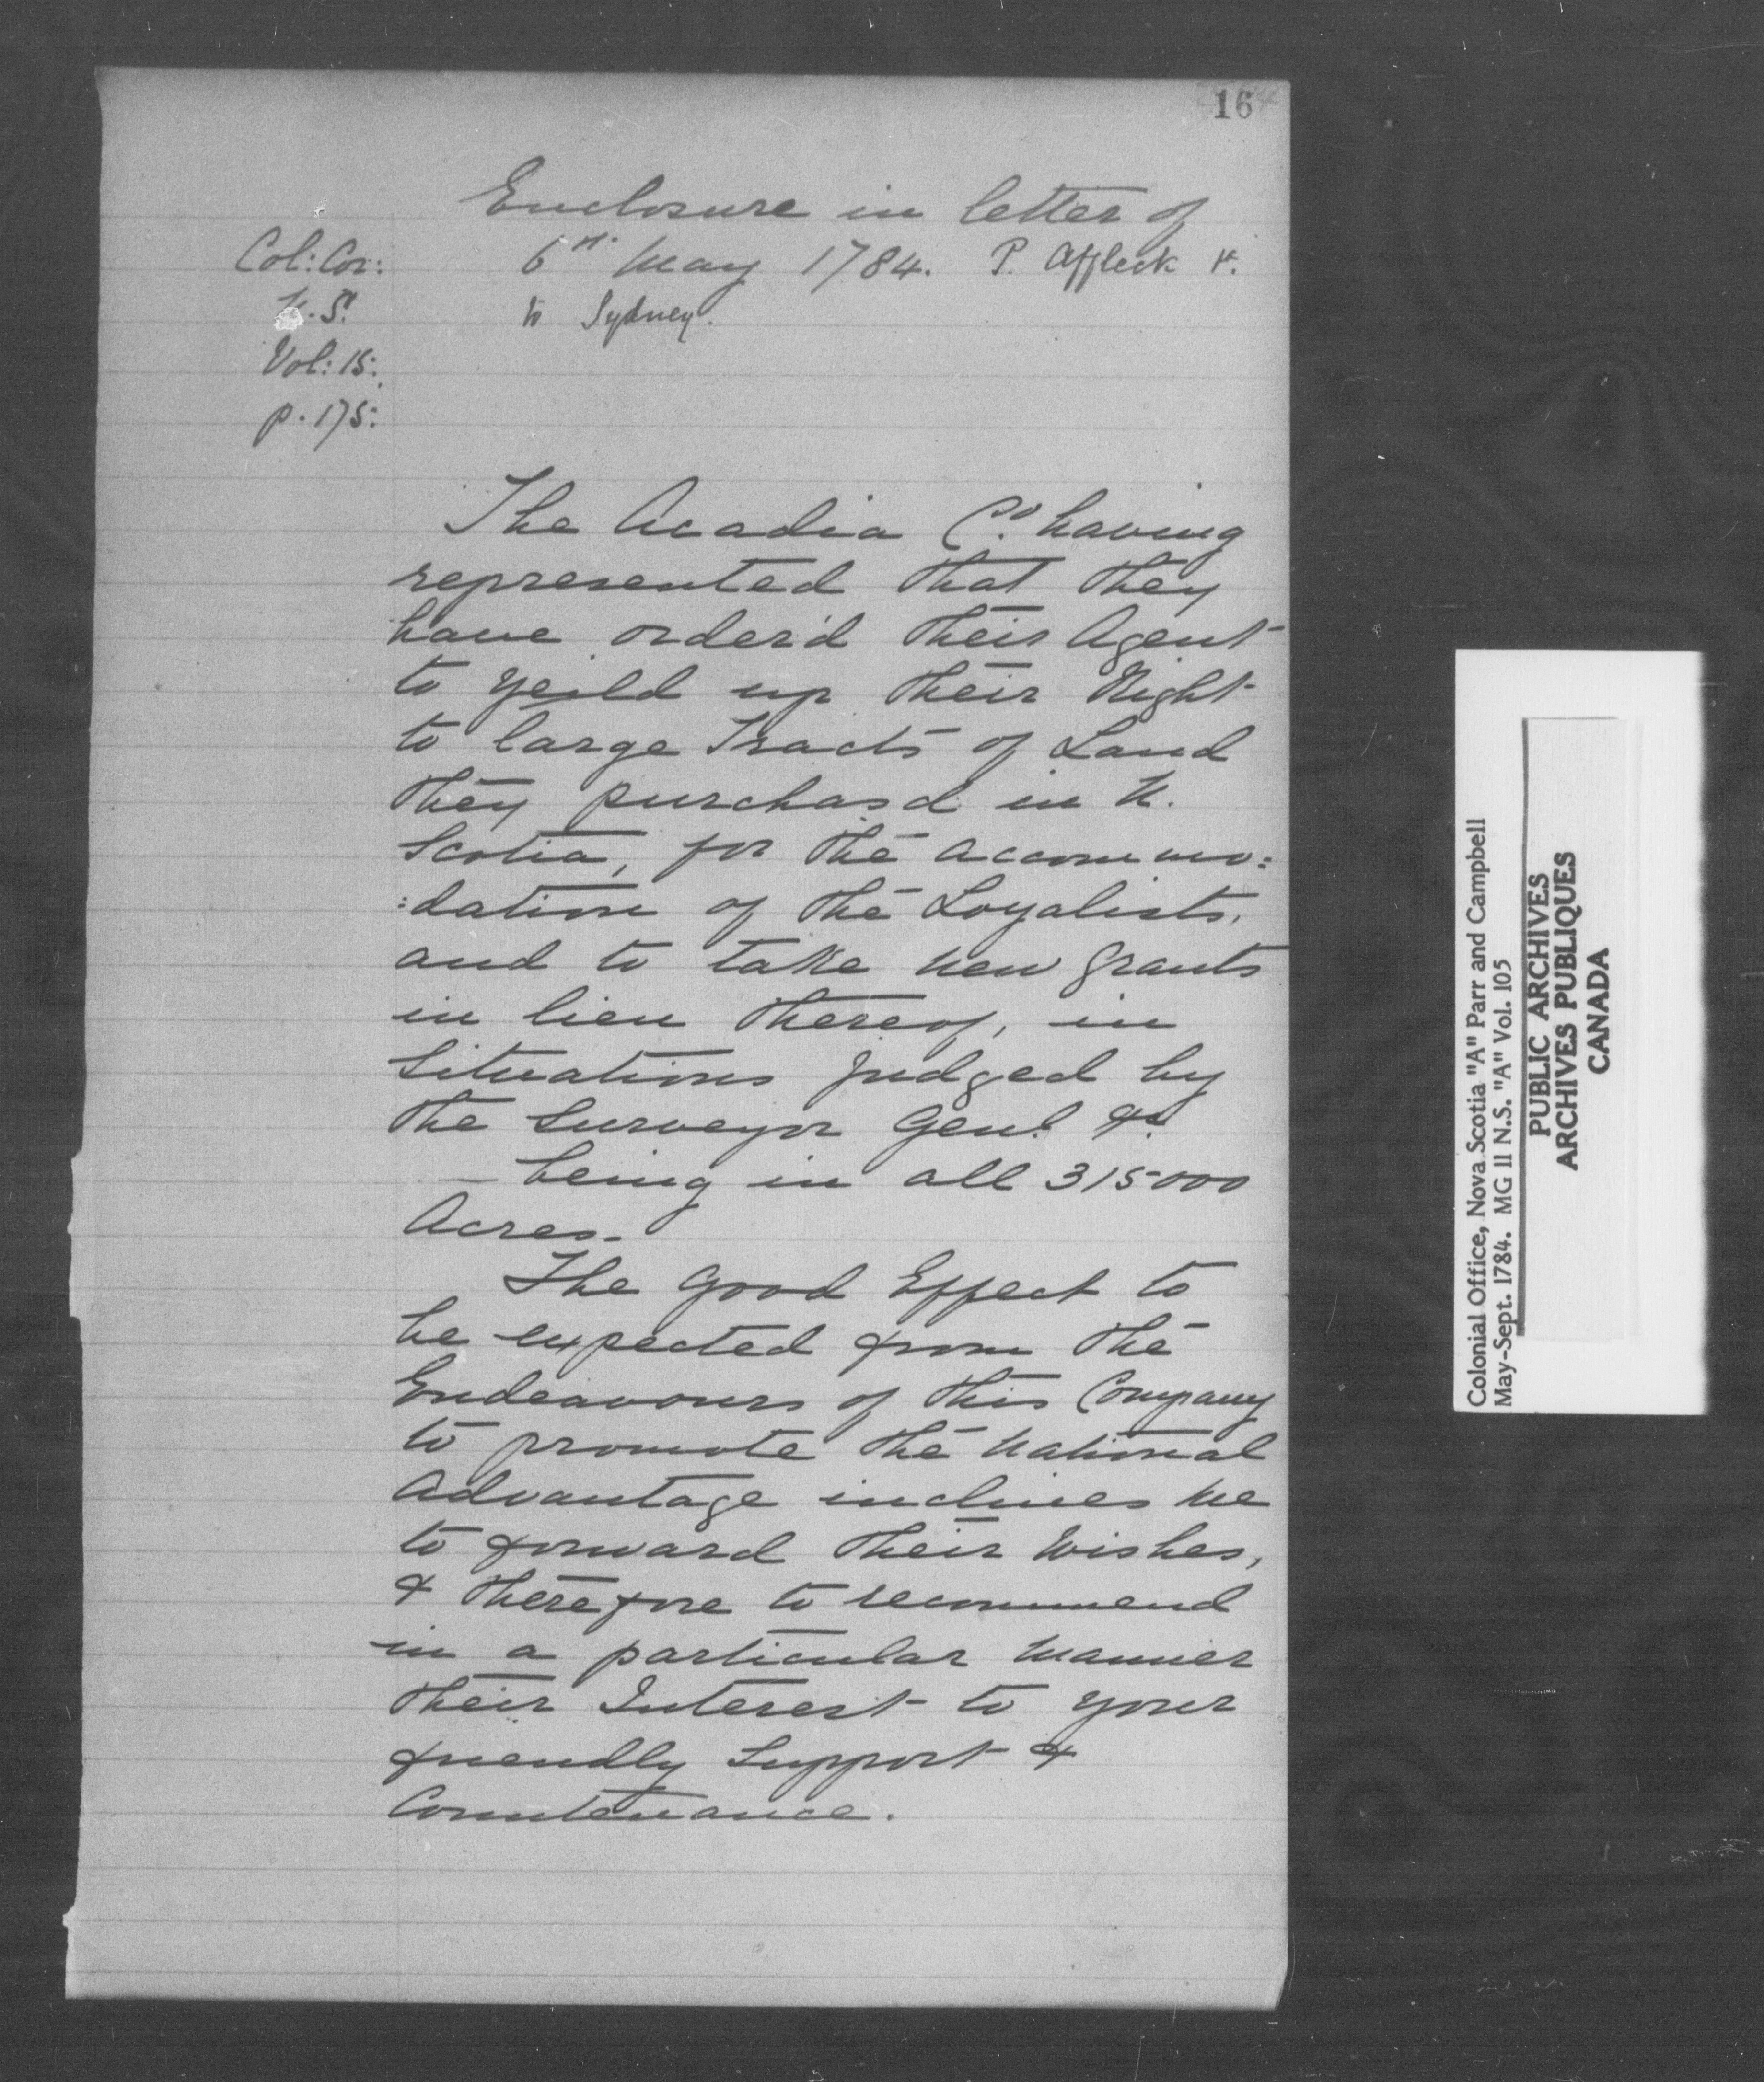 16
Enclosure in letter of
Col: Cor: 6th May 1784. P. Affleck
N.S. to Sydney.
Vol: 15:
p. 175:
The Acadia Co. having
represented that they
have order'd their Agent
to yeild up their Right
to large Tracts of Land
they purchasd in N.
Scotia, for the accommo:
:dation of the Loyalists,
and to take new grants
in lieu thereof, in
Situations judged by
the Surveyor Genl. &c.
— being in all 315000
Acres.
The good Effect to
be expected from the
Endeavours of this Company
to promote the National
Advantage inclines me
to forward their Wishes,
& therefore to recommend
in a particular manner
their Interest to your
friendly Support &
Countenance.
Colonial Office, Nova Scotia "A" Parr and Campbell
May-Sept. 1784. MG 11 N.S. "A" Vol. 105
PUBLIC ARCHIVES
ARCHIVES PUBLIQUES
CANADA